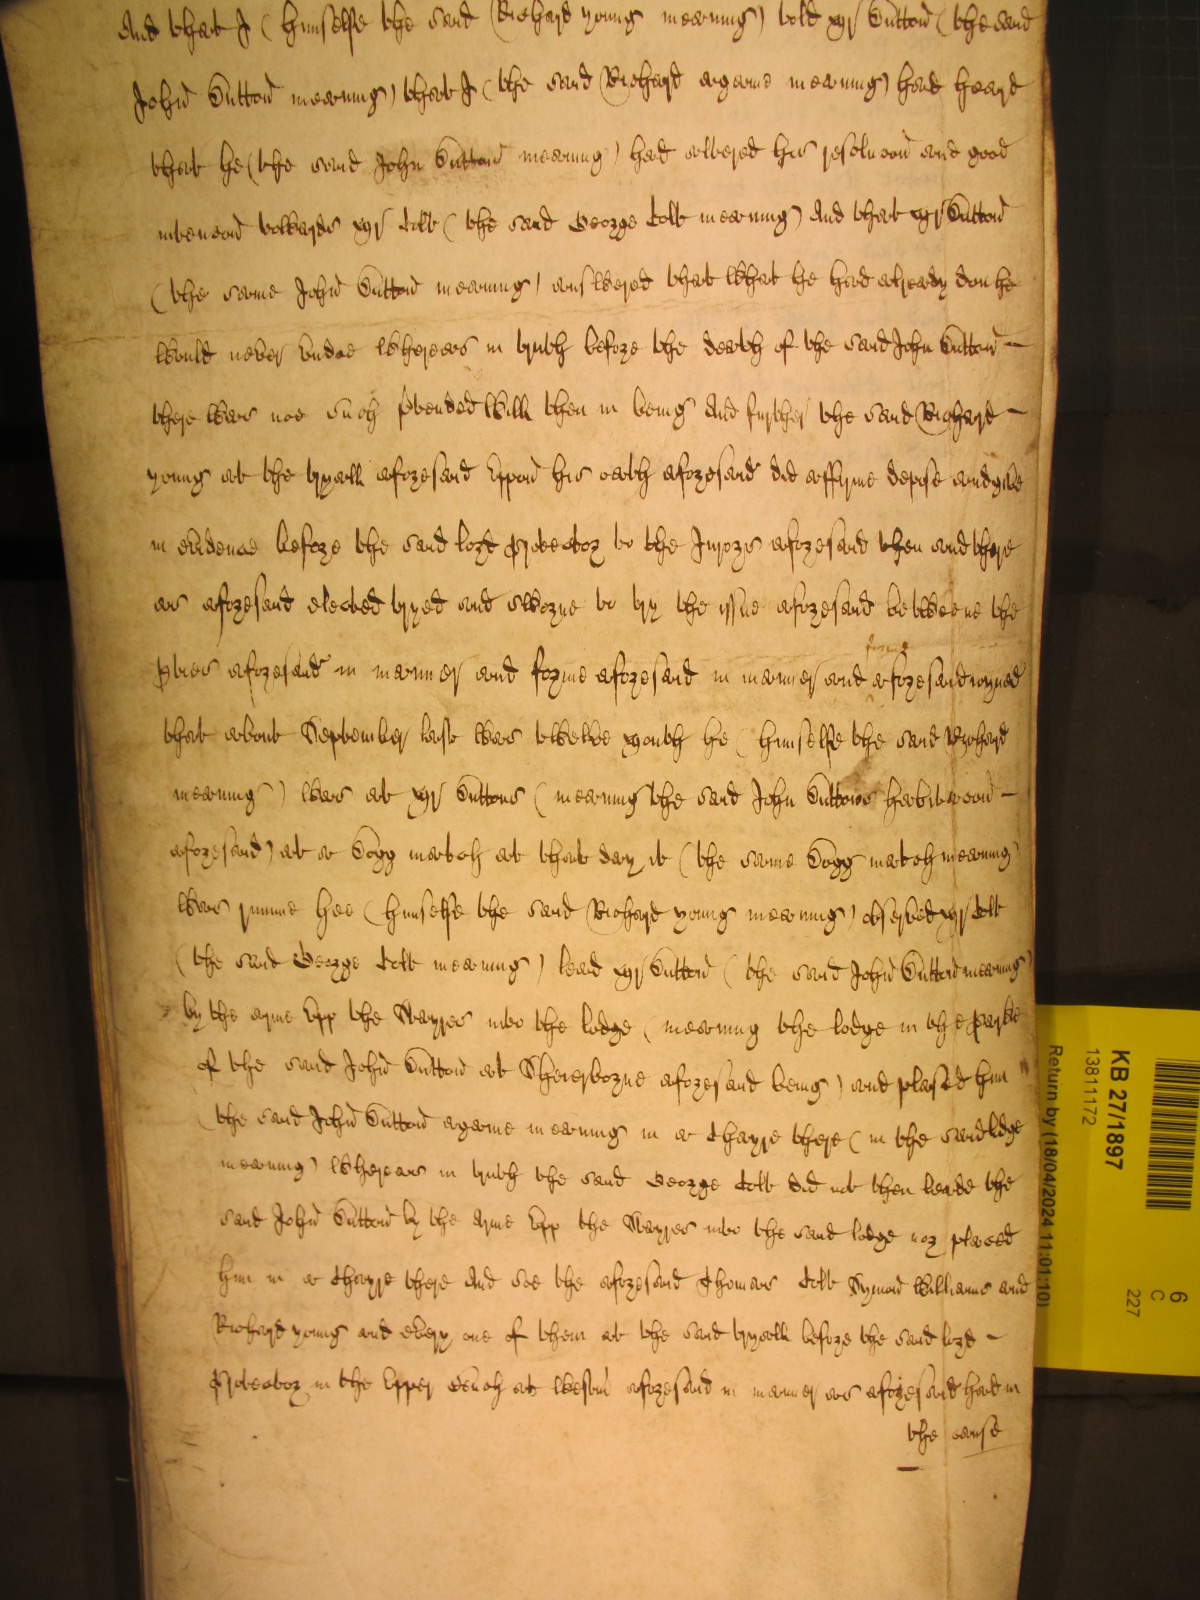 And that I (himselfe the said Richard young meaning) told Mr Sutton (the said
John Sutton meaning) that I (the said Richard againe meaning) had heard
that he (the said John Sutton meaning) had altered his resolucon and good
intencon towards Mr Colt (the said George Colt meaning) And that Mr Sutton
(the same John Sutton meaning) answered that what he had already don he
would never undoe Whereas in truth before the death of the said John Sutton
there was noe such ptended Will then in being And further the said Richard
young at the tryall aforesaid uppon his oath aforesaid did affirme depose and give
in evidence before the said lord Protector to the Jurors aforesaid then and there
as aforesaid elected tryed and sworne to try the issue aforesaid betweene the
pties aforesaid in manner and forme aforesaid in manner and forme aforesaid ioyned
that about September last was twelve Month he (himselfe the said Richard
meaning) was at Mr Suttons (meaning the said John Suttons habitacon
aforesaid) at a Dogg match at that day it (the same Dogg match meaning
was runne hee (himselfe the said Richard young meaning) observed Mr Colt
(the said George Colt meaning) lead Mr Sutton (the said John Sutton meaning)
by the arme upp the Stayres into the lodge (meaning the lodge in the parke
of the said John Sutton at Sheirborne aforesaid being) and placed him
(the said John Sutton againe meaning in a Chayre there (in the said lodge
meaning) Whereas in truth the said George Colt did not then leade the
said John Sutton by the Arme upp the Stayres into the said lodge nor placed
him in a Chayre there And soe the aforesaid Thomas Colt Symon Williams and
Richard young and every one of them at the said tryall before the said lord
Protector in the upper Bench at Westm aforesaid in manner as aforesaid had in
the cause
KB 27/1897
13811172
Return by (18/04/2024 11:01:10)
6
C
227